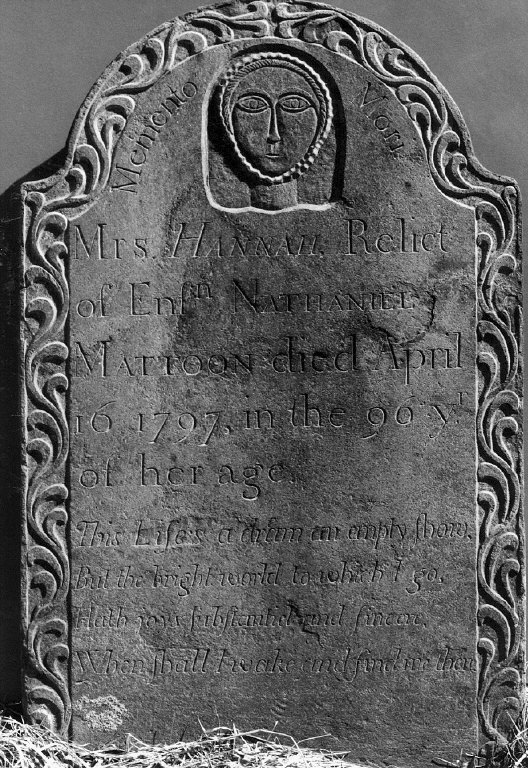 Memento Mori
Mrs. HANNAH, Relict
of Ensⁿ NATHANIEL
MATTOON died April
16 1797, in the 96 yʳ
of her age.
This Life's a dream an empty show,
But the bright world to which I go,
Hath joys substantial and sincere,
When shall I wake and find me there